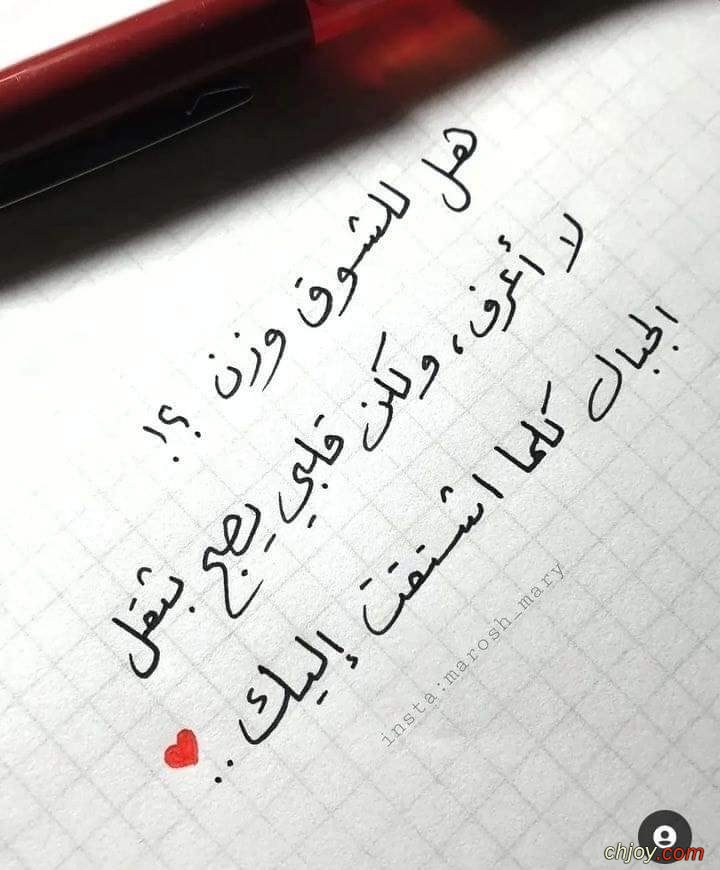 هل للشوق وزن ؟!
لا أعرف، ولكن قلبي يصبح بثقل
الجبال كلما اشتقت إليك..
insta:marosh_mary
chjoy.com